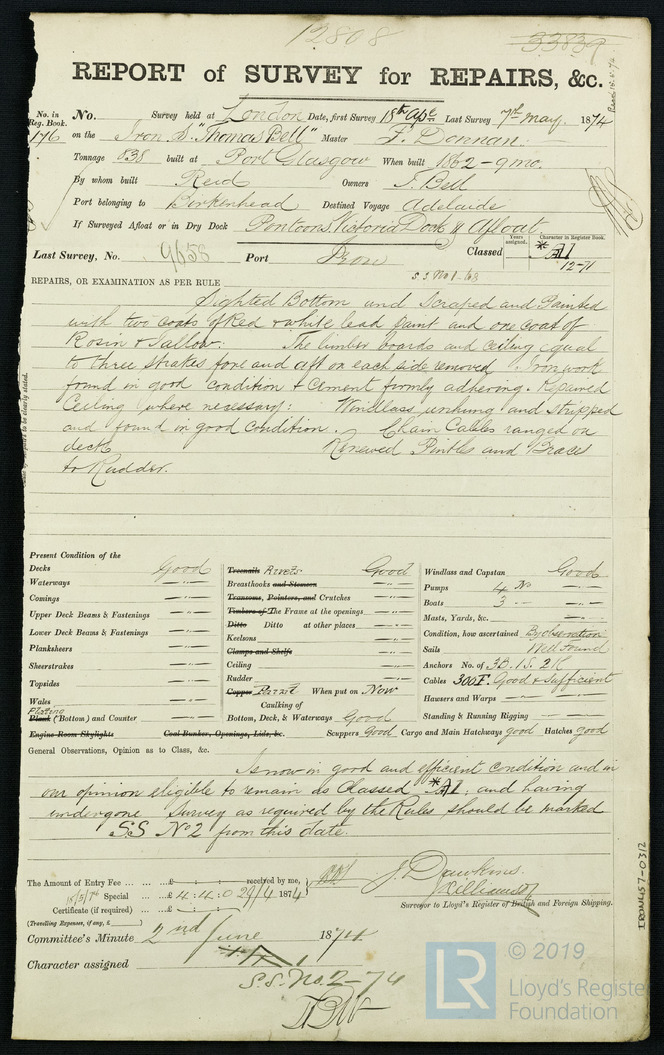 12808
33839
REPORT of SURVEY for REPAIRS, &c.
No. in Reg. Book. No. Survey held at London Date, first Survey 18th Apl Last Survey 7th May 1874
176 on the Iron S. "Thomas Bell" Master F. Donnan
Tonnage 538 built at Port Glasgow When built 1862 - 9 mo.
By whom built Reid Owners T. Bell
Port belonging to Birkenhead Destined Voyage Adelaide
If Surveyed Afloat or in Dry Dock Pontoons Victoria Dock & Afloat
Years assigned. Character in Register Book.
Last Survey, No. 9658 Port Iron Classed *A1
12-71
S S No 1-68
REPAIRS, OR EXAMINATION AS PER RULE
Sighted Bottom and Scraped and Painted
with two coats of Red & white lead paint and one coat of
Rosin & Tallow: The limber boards and ceiling equal
to three strakes fore and aft on each side removed. Ironwork
found in good condition & Cement firmly adhering. Repaired
Ceiling where necessary: Windlass unhung and stripped
and found in good condition. Chain Cables ranged on
deck Renewed Pintles and Braces
to Rudder.
Present Condition of the
Decks Good
Waterways — „ —
Comings — „ —
Upper Deck Beams & Fastenings — „ —
Lower Deck Beams & Fastenings — „ —
Planksheers — „ —
Sheerstrakes — „ —
Topsides — „ —
Wales — „ —
Plating
Plank (Bottom) and Counter — „ —
Engine Room Skylights
Treenails Rivets Good
Breasthooks and Stemson — „ —
Transoms, Pointers, and Crutches — „ —
Timbers of The Frame at the openings — „ —
Ditto Ditto at other places — „ —
Keelsons — „ —
Clamps and Shelfs
Ceiling — „ —
Rudder — „ —
Copper When put on Now
Caulking of
Bottom, Deck, & Waterways Good
Coal Bunker, Openings, Lids, &c.
Windlass and Capstan Good
Pumps 4 No — „ —
Boats 3 — — „ —
Masts, Yards, &c. — „ —
Condition, how ascertained By observation
Sails Well Found
Anchors No. of 3B. 1S. 2K
Cables 300F. Good & Sufficient
Hawsers and Warps — „ —
Standing & Running Rigging — „ —
Scuppers Good Cargo and Main Hatchways good Hatches good
General Observations, Opinion as to Class, &c.
Is now in good and efficient condition and in
our opinion eligible to remain as Classed *A1; and having
undergone Survey as required by the Rules should be marked
S.S No 2 from this date.
The Amount of Entry Fee ... £ : : received by me,
15/5/74 Special ... £ 4 : 4 : 0 29/4 1874
Certificate (if required) ... £ : :
(Travelling Expenses, if any, £ )
J. Dawkins
Surveyor to Lloyd's Register of British and Foreign Shipping.
Committee's Minute 2nd June 1874
Character assigned *A1
S.S. No. 2 - 74
IRON457-0312
© 2019
LR
Lloyd's Register
Foundation